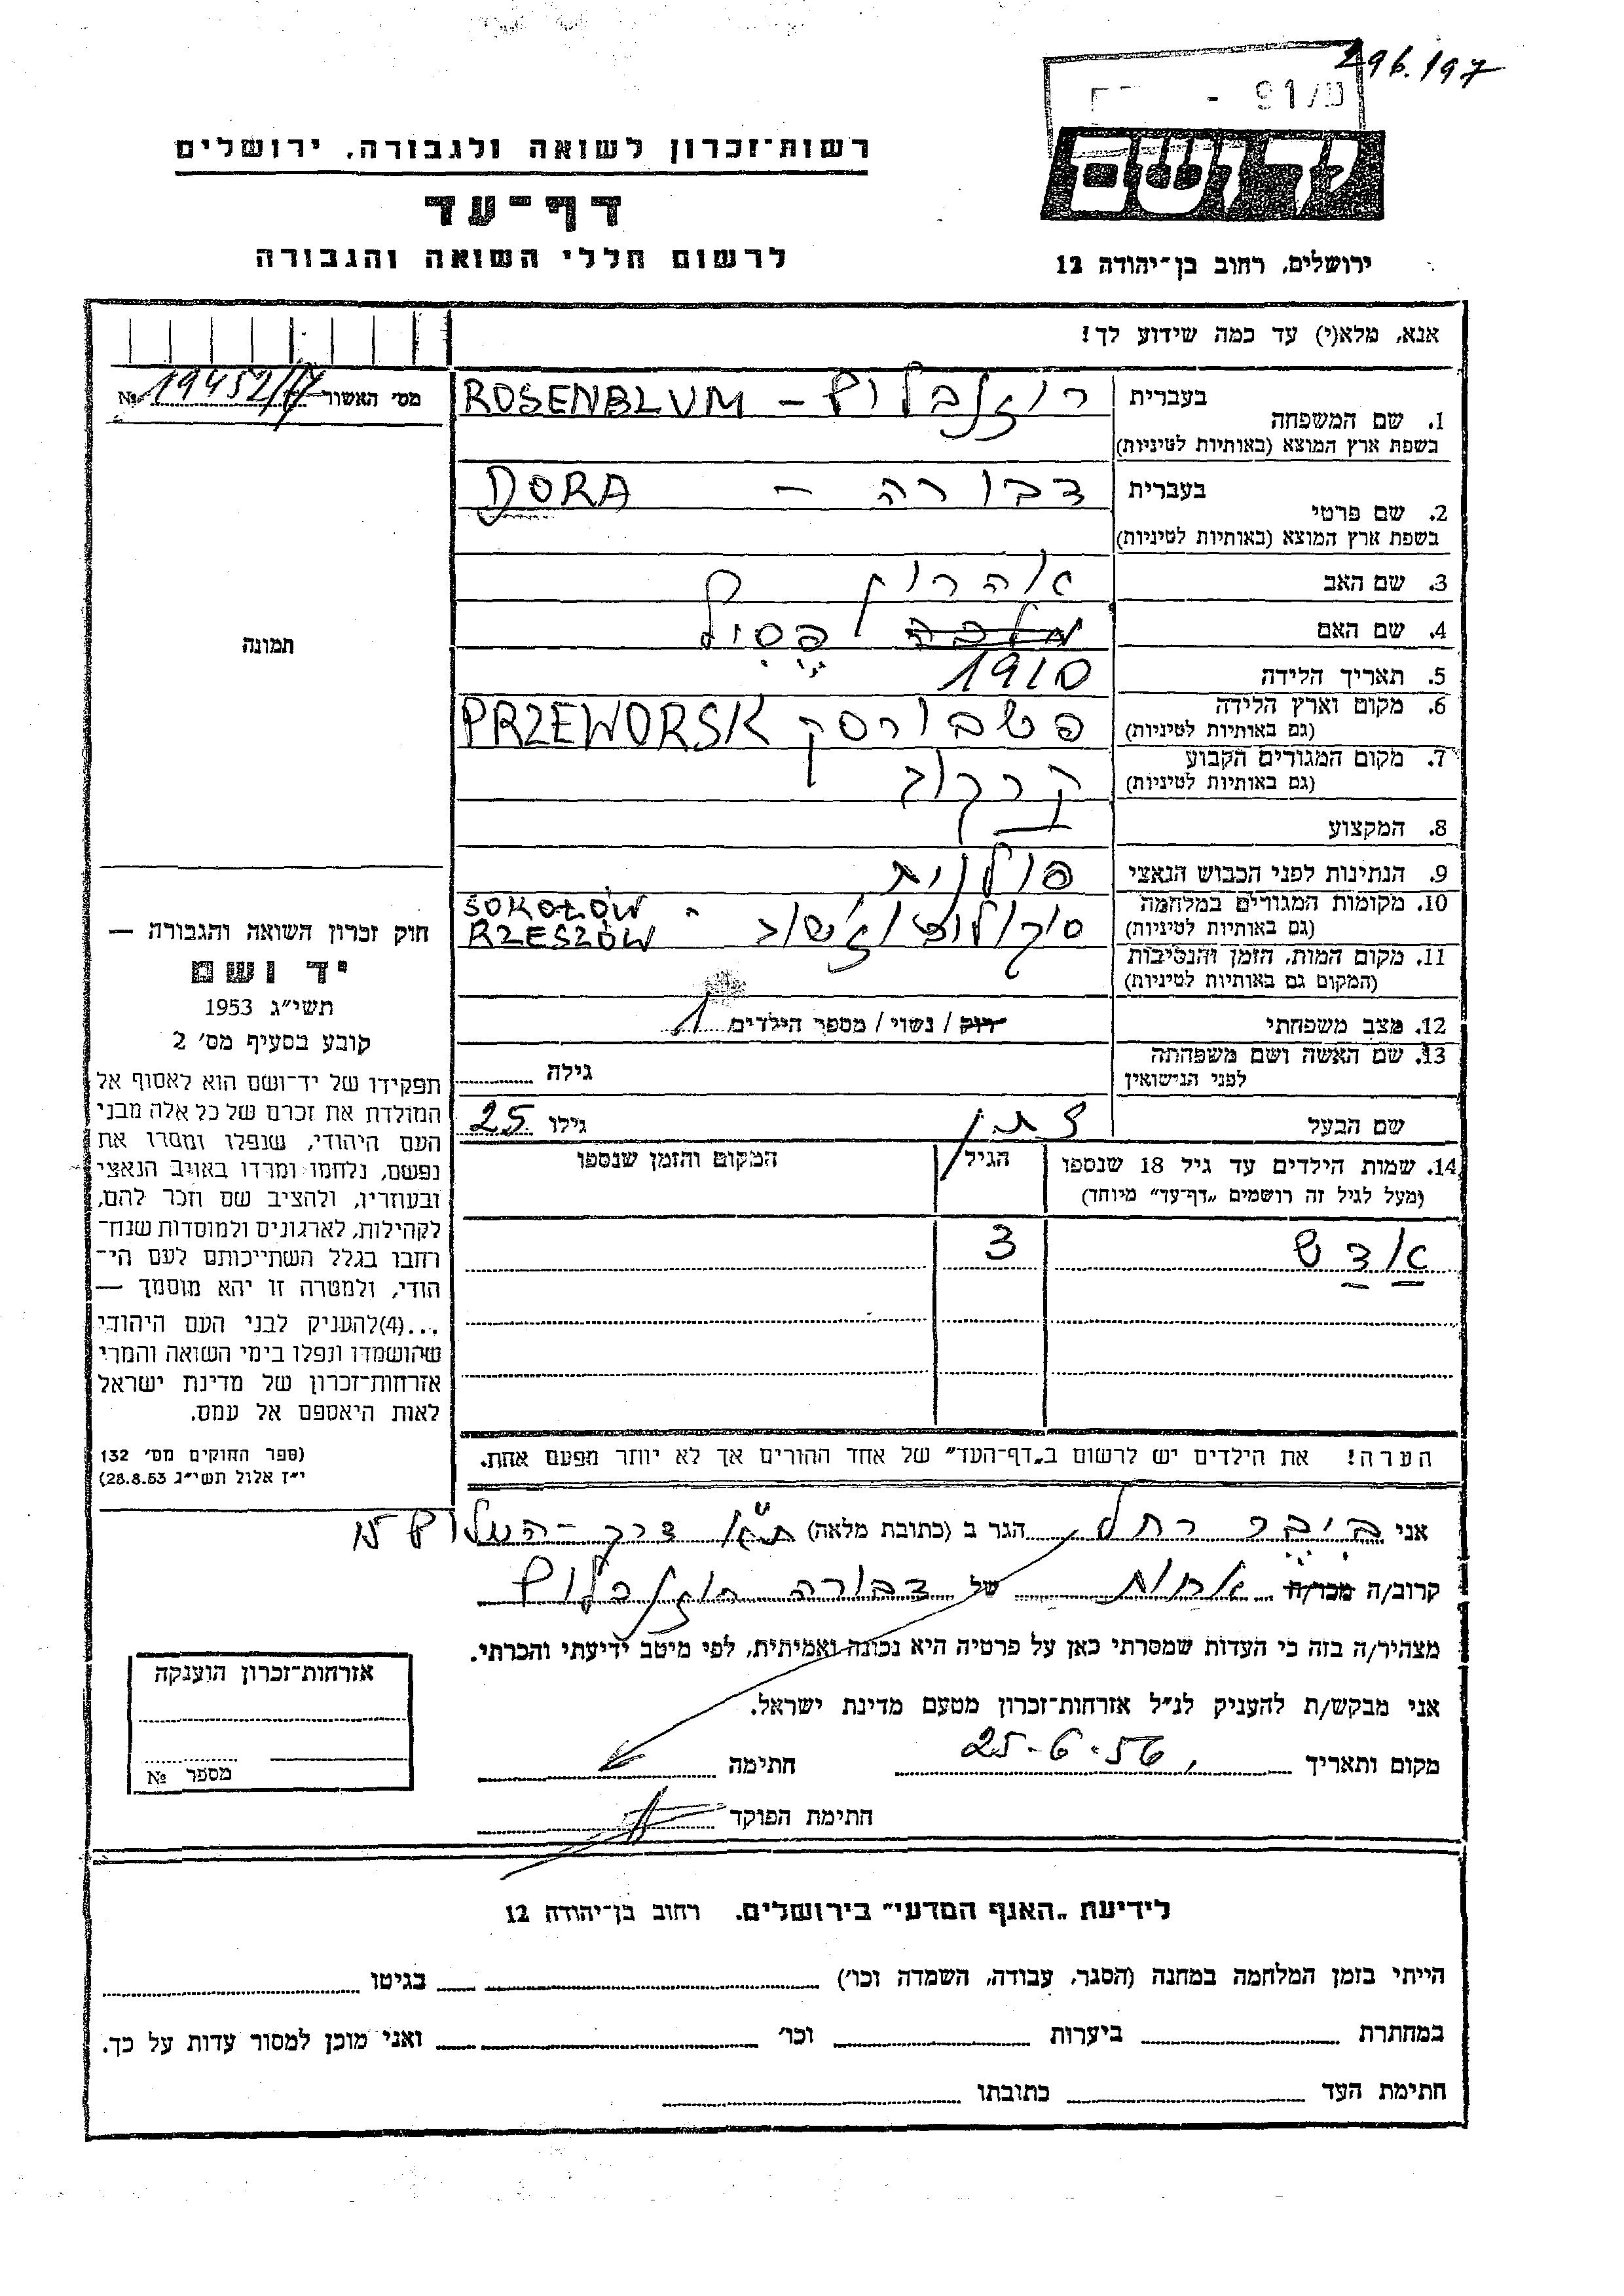 296.197
רשות־זכרון לשואה ולגבורה, ירושלים
דף־עד
לרשום חללי השואה והגבורה
יד ושם
ירושלים, רחוב בן־יהודה 12
אנא, מלא(י) עד כמה שידוע לך!
מס׳ האשור 19452/17 №
1. שם המשפחה בעברית רוזנבלום – ROSENBLUM
בשפת ארץ המוצא (באותיות לטיניות)
2. שם פרטי בעברית דבורה – DORA
בשפת ארץ המוצא (באותיות לטיניות)
3. שם האב אהרון
4. שם האם מלכה פסיל
5. תאריך הלידה 1910
6. מקום וארץ הלידה (גם באותיות לטיניות) פשבורסק PRZEWORSK
7. מקום המגורים הקבוע (גם באותיות לטיניות) קרקוב
8. המקצוע
9. הנתינות לפני הכבוש הנאצי פולנית
10. מקומות המגורים במלחמה (גם באותיות לטיניות) SOKOŁÓW RZESZÓW
11. מקום המות, הזמן והנסיבות
(המקום גם באותיות לטיניות)
12. מצב משפחתי רוק / נשוי / מספר הילדים 1
13. שם האשה ושם משפחתה לפני הנישואין גילה
שם הבעל נתן גילו 25
14. שמות הילדים עד גיל 18 שנספו
(מעל לגיל זה רושמים „דף־עד״ מיוחד)
הגיל
המקום והזמן שנספו
3
הערה! את הילדים יש לרשום ב„דף־העד״ של אחד ההורים אך לא יותר מפעם אחת.
תמונה
חוק זכרון השואה והגבורה —
יד ושם
תשי״ג 1953
קובע בסעיף מס׳ 2
תפקידו של יד־ושם הוא לאסוף אל
המולדת את זכרם של כל אלה מבני
העם היהודי, שנפלו ומסרו את
נפשם, נלחמו ומרדו באויב הנאצי
ובעוזריו, ולהציב שם וזכר להם,
לקהילות, לארגונים ולמוסדות שנח־
רחבו בגלל השתייכותם לעם הי־
הודי, ולמטרה זו יהא מוסמך —
...(4)להעניק לבני העם היהודי
שהושמדו ונפלו בימי השואה והמרי
אזרחות־זכרון של מדינת ישראל
לאות היאספם אל עמם.
(ספר החוקים מס׳ 132
י״ז אלול תשי״ג 28.8.53)
אני ביבר רחל הגר ב (כתובת מלאה) ת״א דרך-השלום 15
קרוב/ה מכר/ה אחות של דבורה רוזנבלום
מצהיר/ה בזה כי העדות שמסרתי כאן על פרטיה היא נכונה ואמיתית, לפי מיטב ידיעתי והכרתי.
אני מבקש/ת להעניק לנ״ל אזרחות־זכרון מטעם מדינת ישראל.
מקום ותאריך 25-6-56 חתימה
חתימת הפוקד
אזרחות־זכרון הוענקה
מספר №
לידיעת „האגף המדעי״ בירושלים. רחוב בן־יהודה 12
הייתי בזמן המלחמה במחנה (הסגר, עבודה, השמדה וכו׳) בגיטו
במחתרת ביערות וכו׳ ואני מוכן למסור עדות על כך.
חתימת העד כתובתו